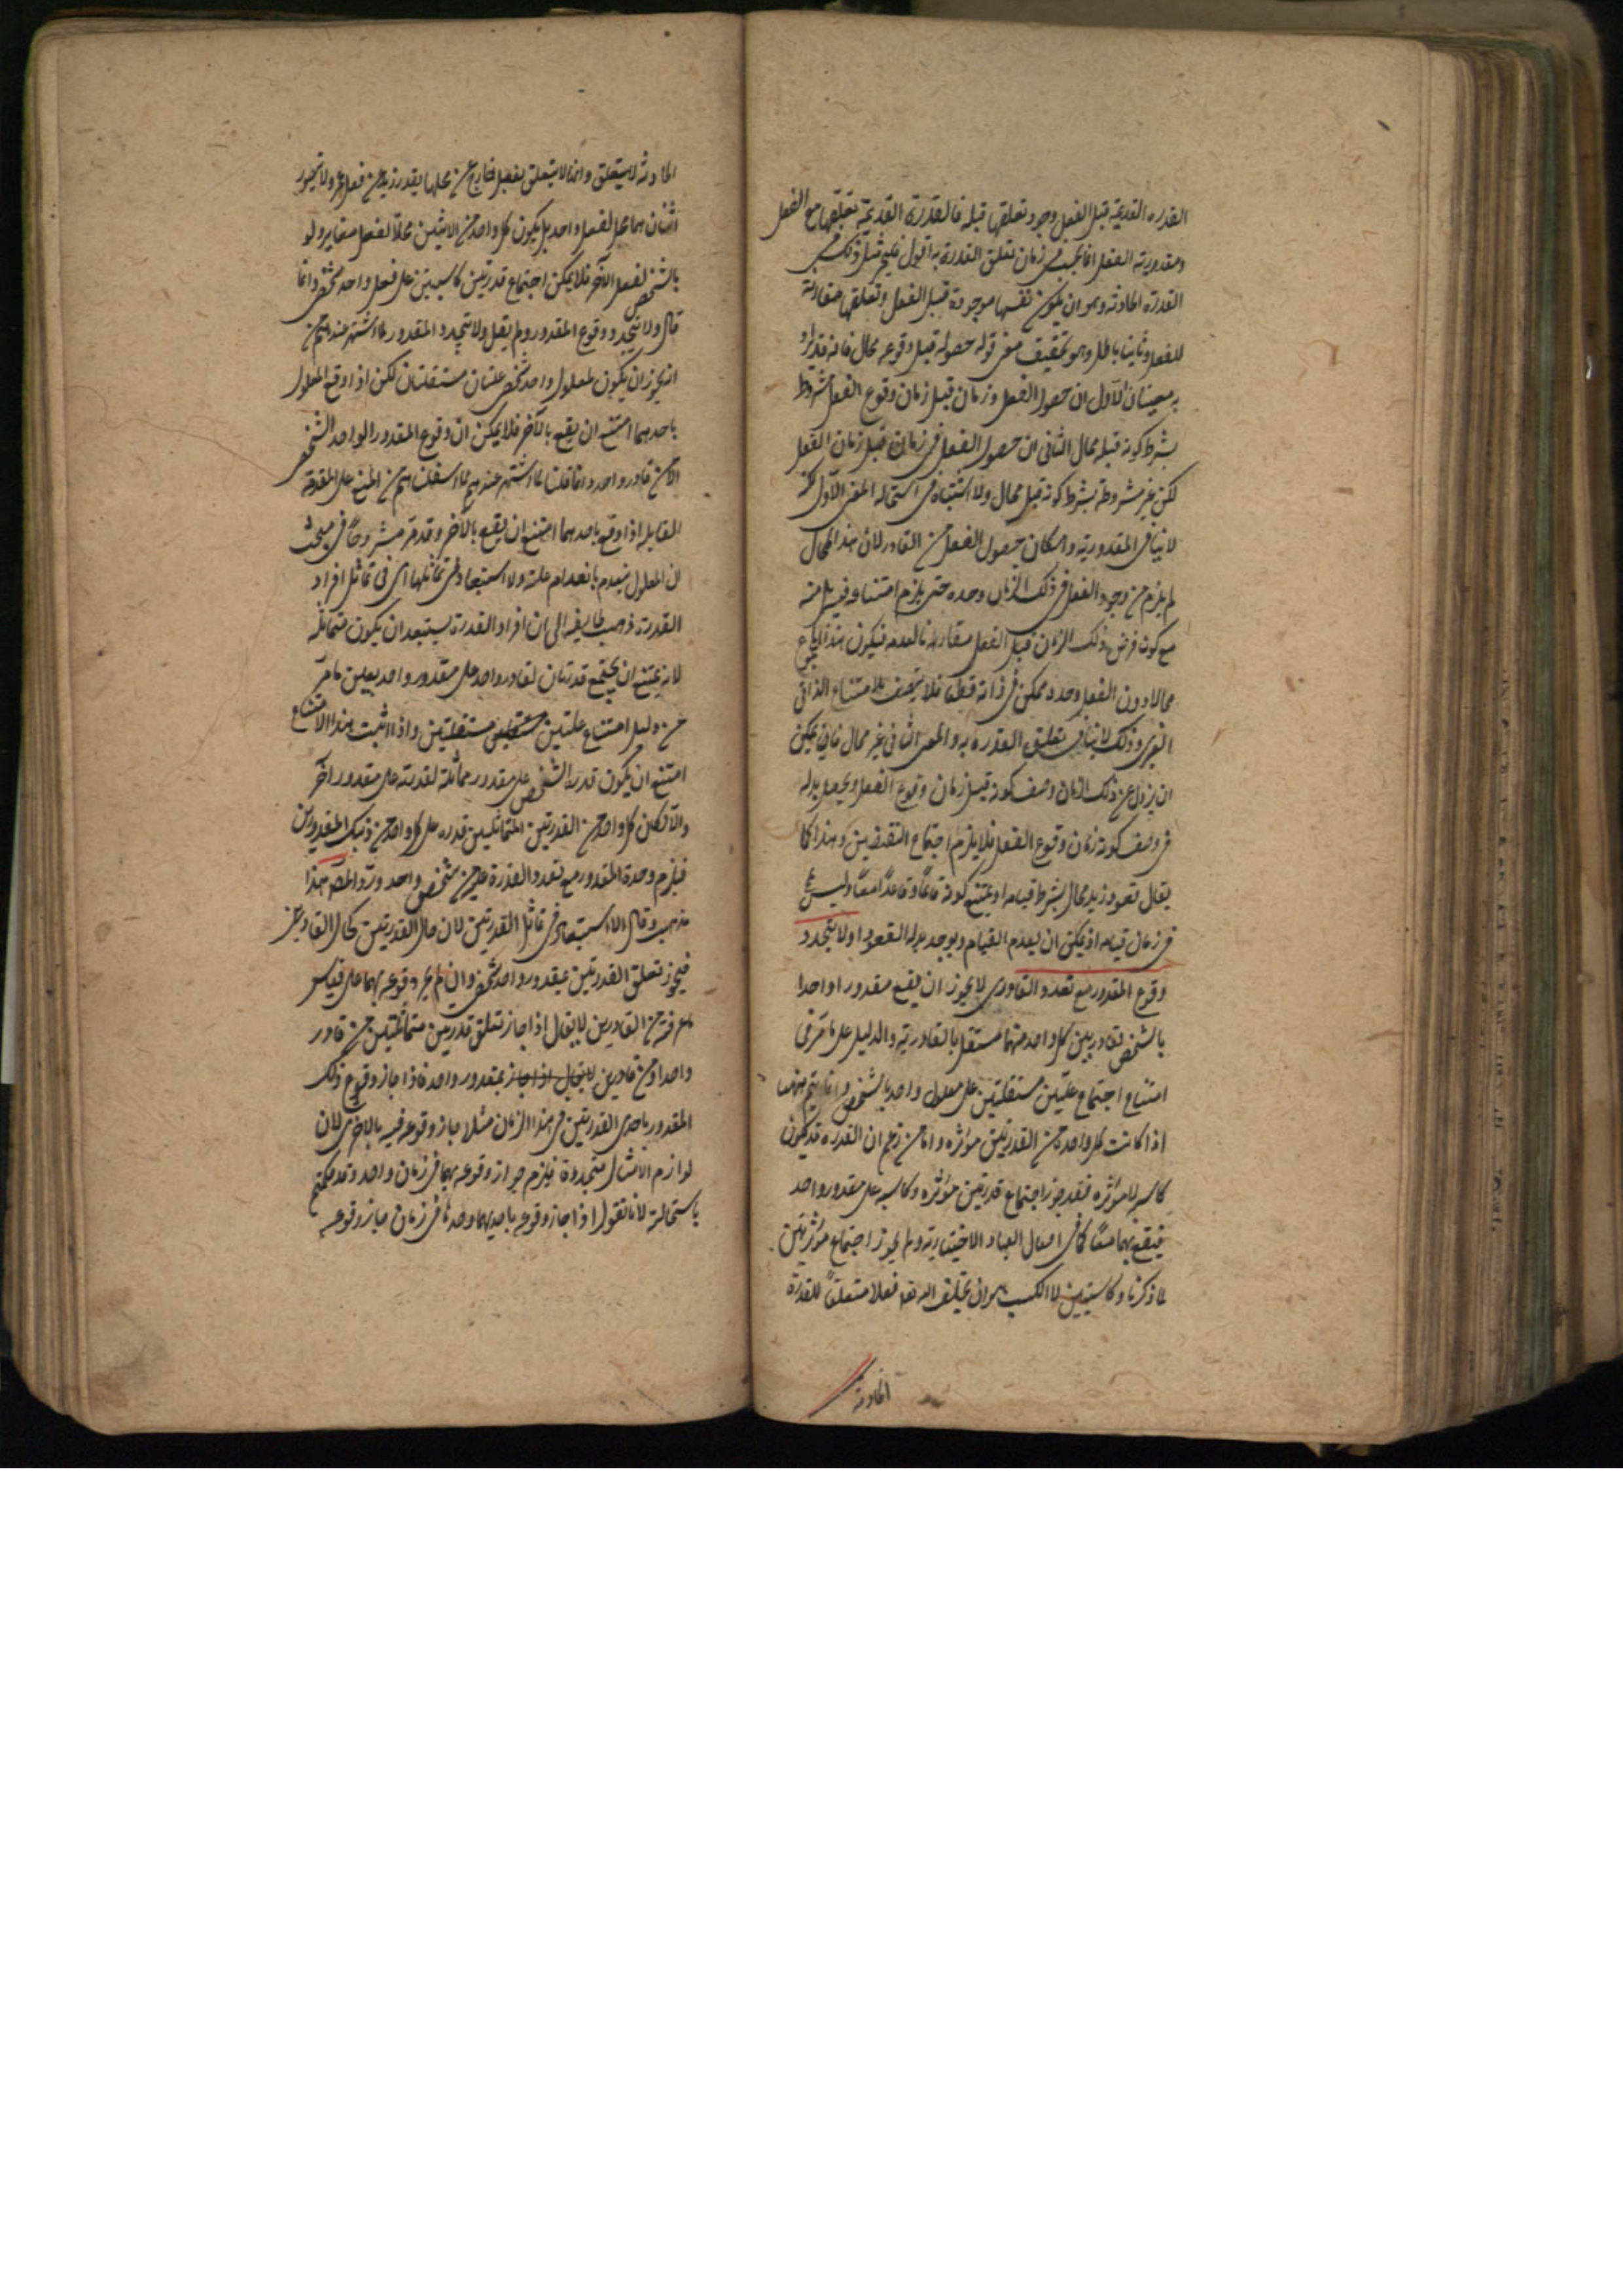 القدرة القديمة قبل الفعل وجود تعلقها قبله فالقدرة القديمة تعلقها مع الفعل
ومقدورية الفعل انما يجب فى زمان تعلق القدرة به اقول فليجز مثل ذلك فى
القدرة الحادثة وهو ان يكون نفسها موجودة قبل الفعل وتعلقها مقارنة
للفعل وثانيا باطل وهو تحقيق معنى قوله حصوله قبل وقوعه محال فانه قد يراد
به معنيان الاول ان حصول الفعل فى زمان قبل زمان وقوع الفعل مشروط
بشرط كونه قبله محال الثانى ان حصول الفعل فى زمان قبل زمان الفعل
لكن غير مشروطة بشرط كونه قبل محال ولا اشتباه فى استحالة المعنى الاول لكنه
لا ينافى المقدورية وامكان حصول الفعل من القادر لان هذا المحال
لم يلزم من وجود الفعل فى ذلك الزمان وحده حتى يلزم امتناعه فيه بل منه
مع كون فرض ذلك الزمان قبل الفعل مقارنا لعدمه فيكون هذا الاجتماع
محالا دون الفعل وحده ممكن فى ذاته قطعا فلا يتصف بالامتناع الذاتى
الغيرى وذلك لا ينافى تعلق القدرة به والمعنى الثانى غير محال فانه يمكن
ان يزول عن ذلك الزمان وصف كونه قبل زمان وقوع الفعل ويحصل بدله
فى وصف كونه زمان وقوع الفعل فلا يلزم اجتماع النقيضين وهذا كما
يقال قعود زيد محال بشرط قيامه اذ يمتنع كونه قائما وقاعدا معا وليس بمحال
فى زمان قيامه اذ يمكن ان يعدم القيام ويوجد بدله القعود ولا يتجدد
وقوع المقدور مع تعدد القادر لا يجوز ان يقع مقدور واحد
بالشخص بقادرين كل واحد منهما مستقل بالقادرية والدليل على ما مر فى
امتناع اجتماع علتين مستقلتين على معلول واحد بالشخص وانما يتم هذا
اذا كانت كل واحدة من القدرتين مؤثرة واما من زعم ان القدرة قد يكون
كاسبة لا مؤثرة فقد جوز اجتماع قدرتين مؤثرة وكاسبة على مقدور واحد
فيقع بهما معا كما فى افعال العباد الاختيارية ولم يجوز اجتماع مؤثرتين
لما ذكرنا وكاسبتين لان الكسب هو ان يخلق الله تعالى فعلا متعلقا للقدرة
الحادثة
الحادثة لا يتعلق وانها لا يتعلق بفعل خارج عن محلها يقدر زيد عن فعل عمرو ولا يجوز
اثنان هما محل لفعل واحد بل يكون كل واحد من الاثنين محلا لفعل مغاير ولو
بالشخص لفعل الآخر فلا يمكن اجتماع قدرتين كاسبتين على فعل واحد شخصى وانما
قال ولا يتجدد وقوع المقدور ولم يقل ولا يتجدد المقدور لما اشتهر عندهم من
انه يجوز ان يكون لمعلول واحد شخصى علتان مستقلتان لكن اذا وقع المعلول
باحدهما امتنع ان يقع بالآخر فلا يمكن ان وقوع المقدور الواحد الشخصى
الا من قادر واحد وانما قلنا لما اشتهر عندهم لما اسفلنا هم من المنع على المقدمة
القايلة اذا وقع باحدهما امتنع ان يقع بالآخر وقد مر مشروحا فى مبحث
ان المعلول ينعدم بانعدام علته ولا استبعاد فى تماثلها اى فى تماثل افراد
القدرة ذهب طايفة الى ان افراد القدرة يستبعد ان يكون متماثلة
لانه يمتنع ان يجتمع قدرتان لقادر واحد على مقدور واحد بعين ما مر
من دليل امتناع علتين مستقلتين واذا ثبت هذا الامتناع
امتنع ان يكون قدرة الشخص على مقدور مماثلة لقدرته على مقدور آخر
والا لكان كل واحد من القدرتين المتماثلتين قدرة على كل واحد من ذينك المقدورين
فيلزم وحدة المقدور مع تعدد القدرة عليه من شخص واحد ورد المص هذا
مذهب وقال لا استبعاد فى تماثل القدرتين لان حال القدرتين كحال القادرين
فيجوز تعلق القدرتين بمقدور واحد شخصى وان لم يجز وقوعه بهما على قياس
ما عرفته من القادرين لا يقال اذا جاز تعلق قدرتين متماثلتين من قادر
واحد او من قادرين بمقدور واحد فاذا جاز وقوع ذلك
المقدور باحدى القدرتين فى هذا الزمان مثلا جاز وقوعه فيه بالاخرى لان
لوازم الامثال متحدة فيلزم جواز وقوعه بهما فى زمان واحد وقد حكمتم
باستحالته لانا نقول اذا جاز وقوعه باحديهما وحدها فى زمان جاز وقوعه